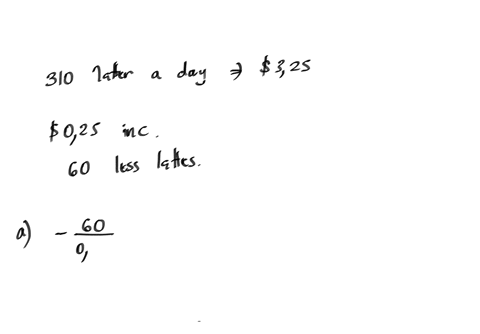 310 latter a day => $3,25
$0,25 inc.
60 less lattes.
a) - 60/0,